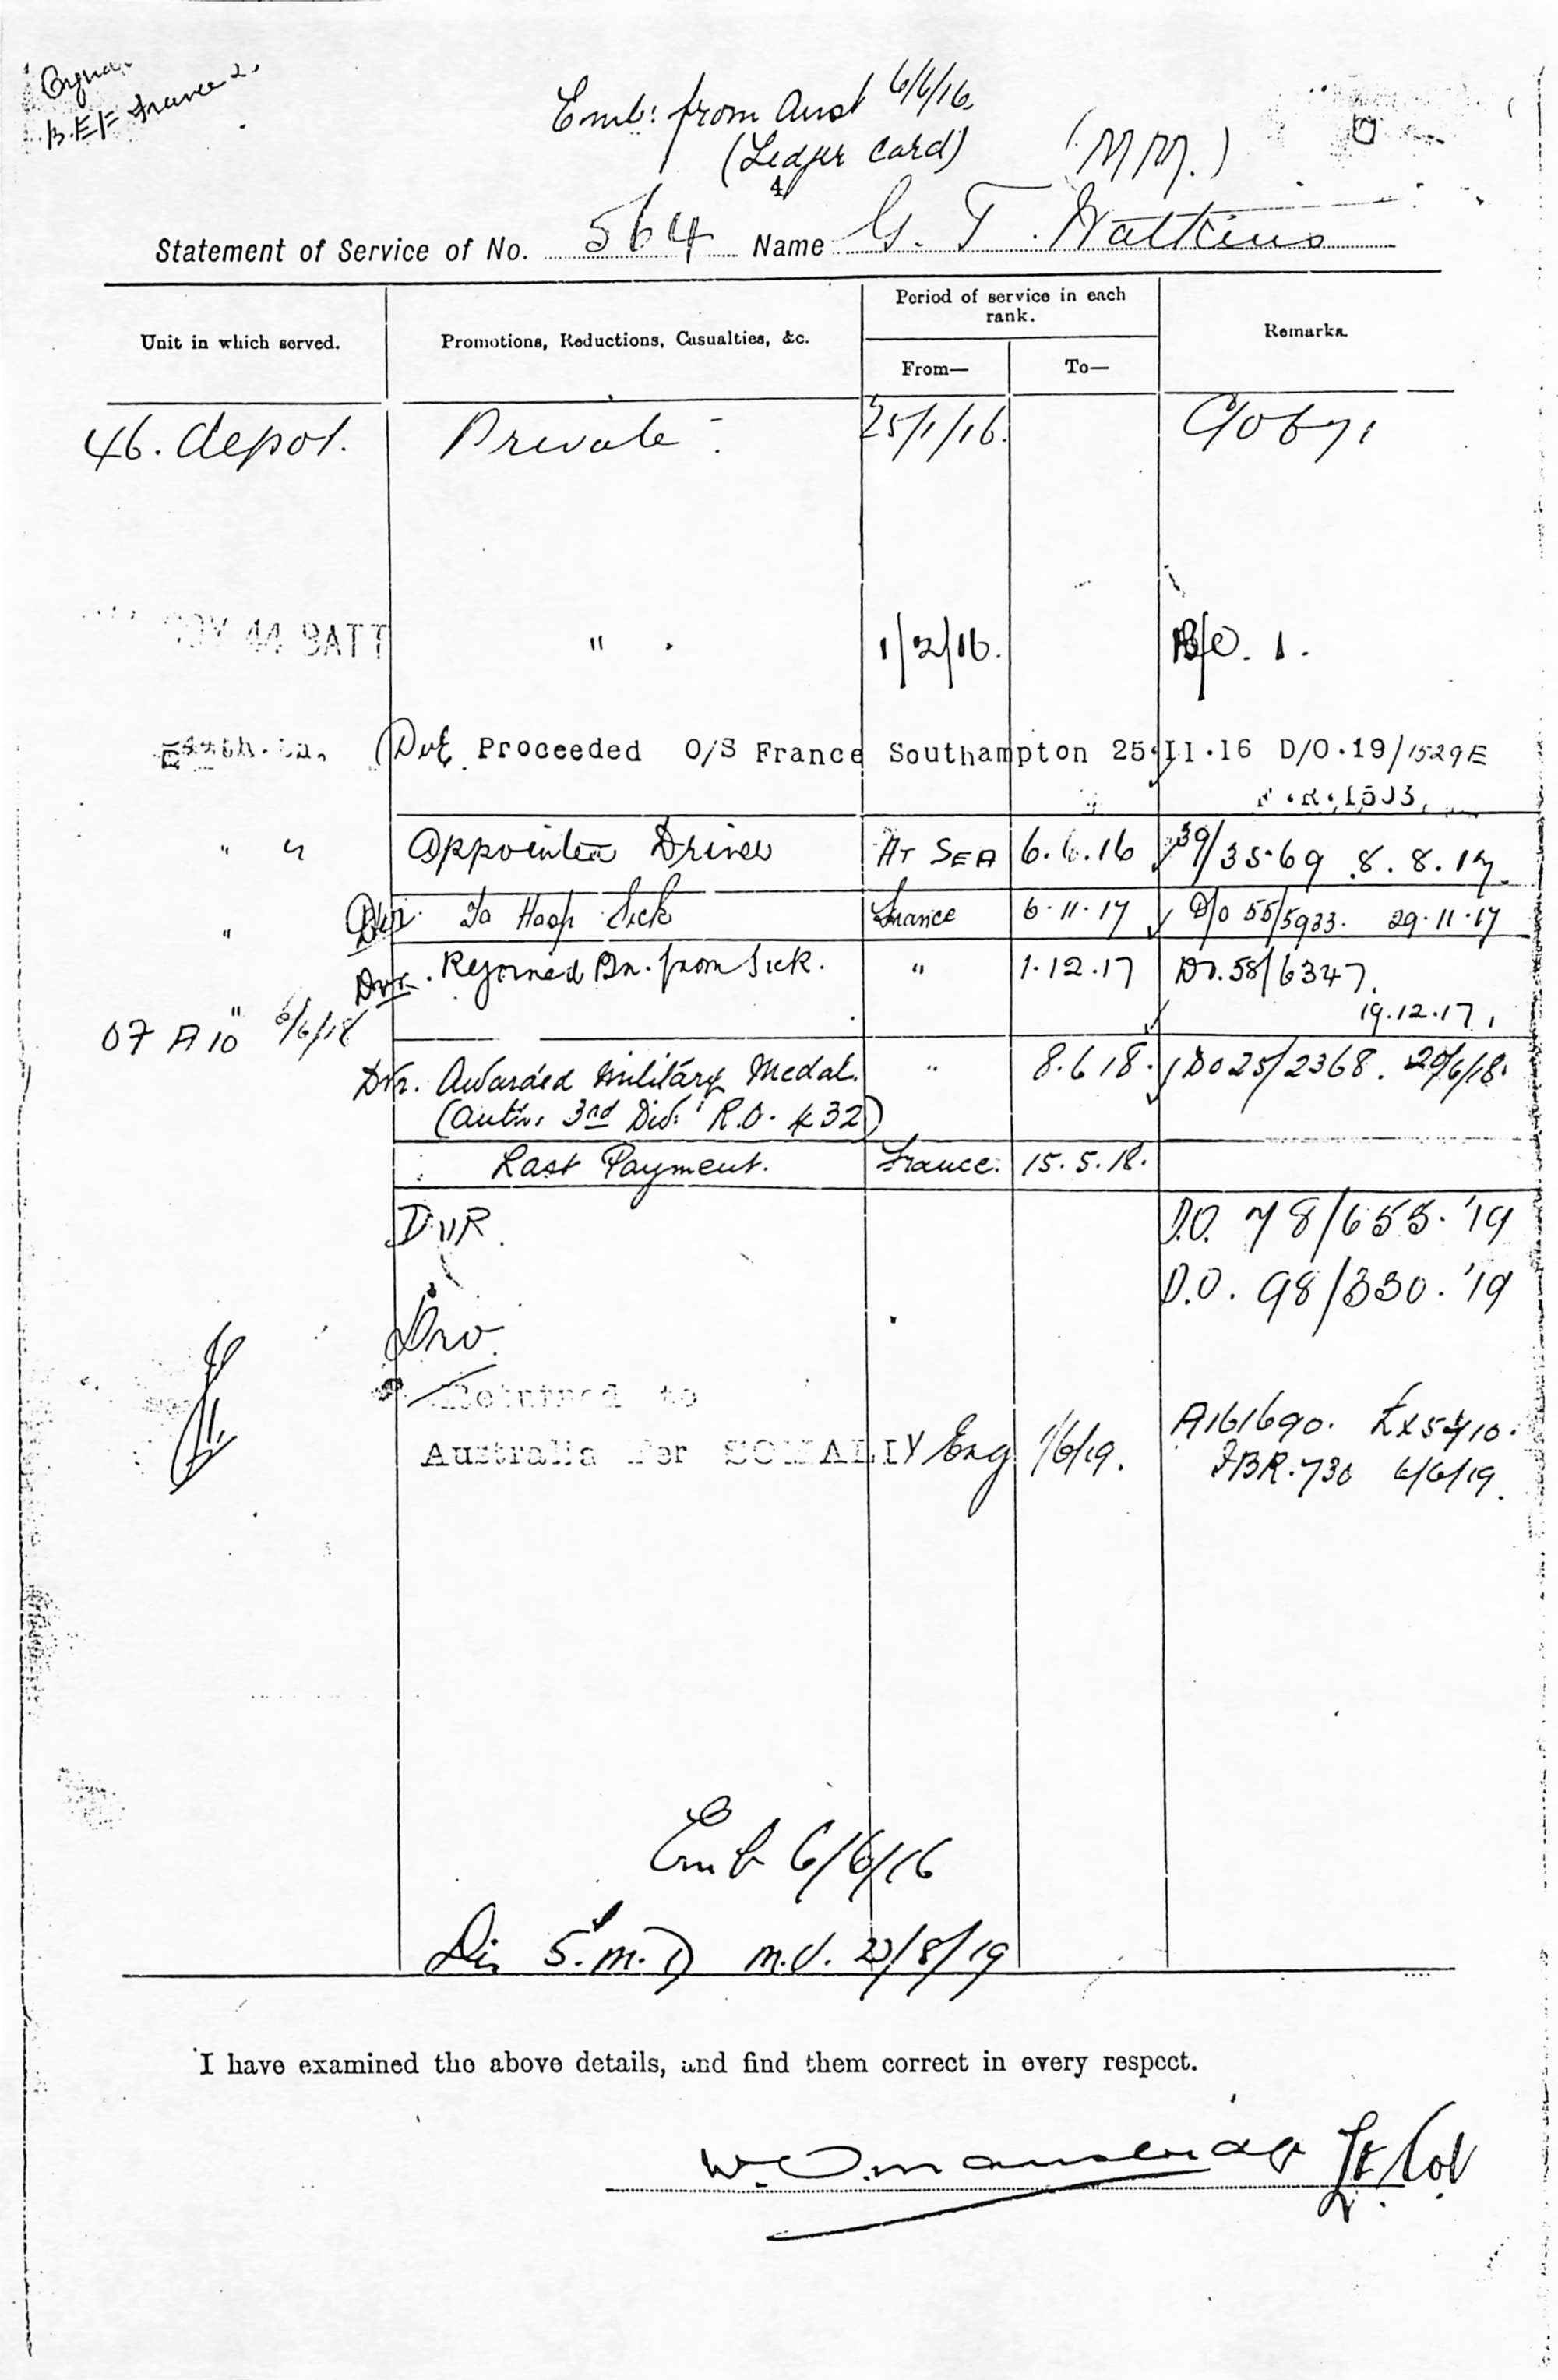 B.E.F France 2.
Emb: from Aust 6/6/16
(Ledger Card)
(M M.)
4
Statement of Service of No. 564 Name G. T. Watkins
Unit in which served.
Promotions, Reductions, Casualties, &c.
Period of service in each rank.
From—
To—
Remarks.
46. depot. Private 25/1/16.
44 BATT " 1/2/16. B/O. 1.
Proceeded O/S France Southampton 25.11.16 D/O.19/1529E
" " Appointed Driver AT SEA 6.6.16 39/3569 8.8.17.
" Dvr. To Hosp Sick France 6.11.17 D/o 55/5933. 29.11.17
" Dvr. Rejoined Bn. from Sick. " 1.12.17 Do.58/6347.
19.12.17.
Dvr. Awarded Military Medal. " 8.6.18. DO 25/2368. 20/6/18.
(Auth: 3rd Div. R.O. 432)
Last Payment. France. 15.5.18.
DVR. D.O. 78/655.'19
D.O. 98/330.'19
Returned to
Australia Per SOMALI Eng 1/6/19. A161690.
6/6/19.
Emb 6/6/16
Dis 5.M.D M.U.
I have examined the above details, and find them correct in every respect.
Lt Col